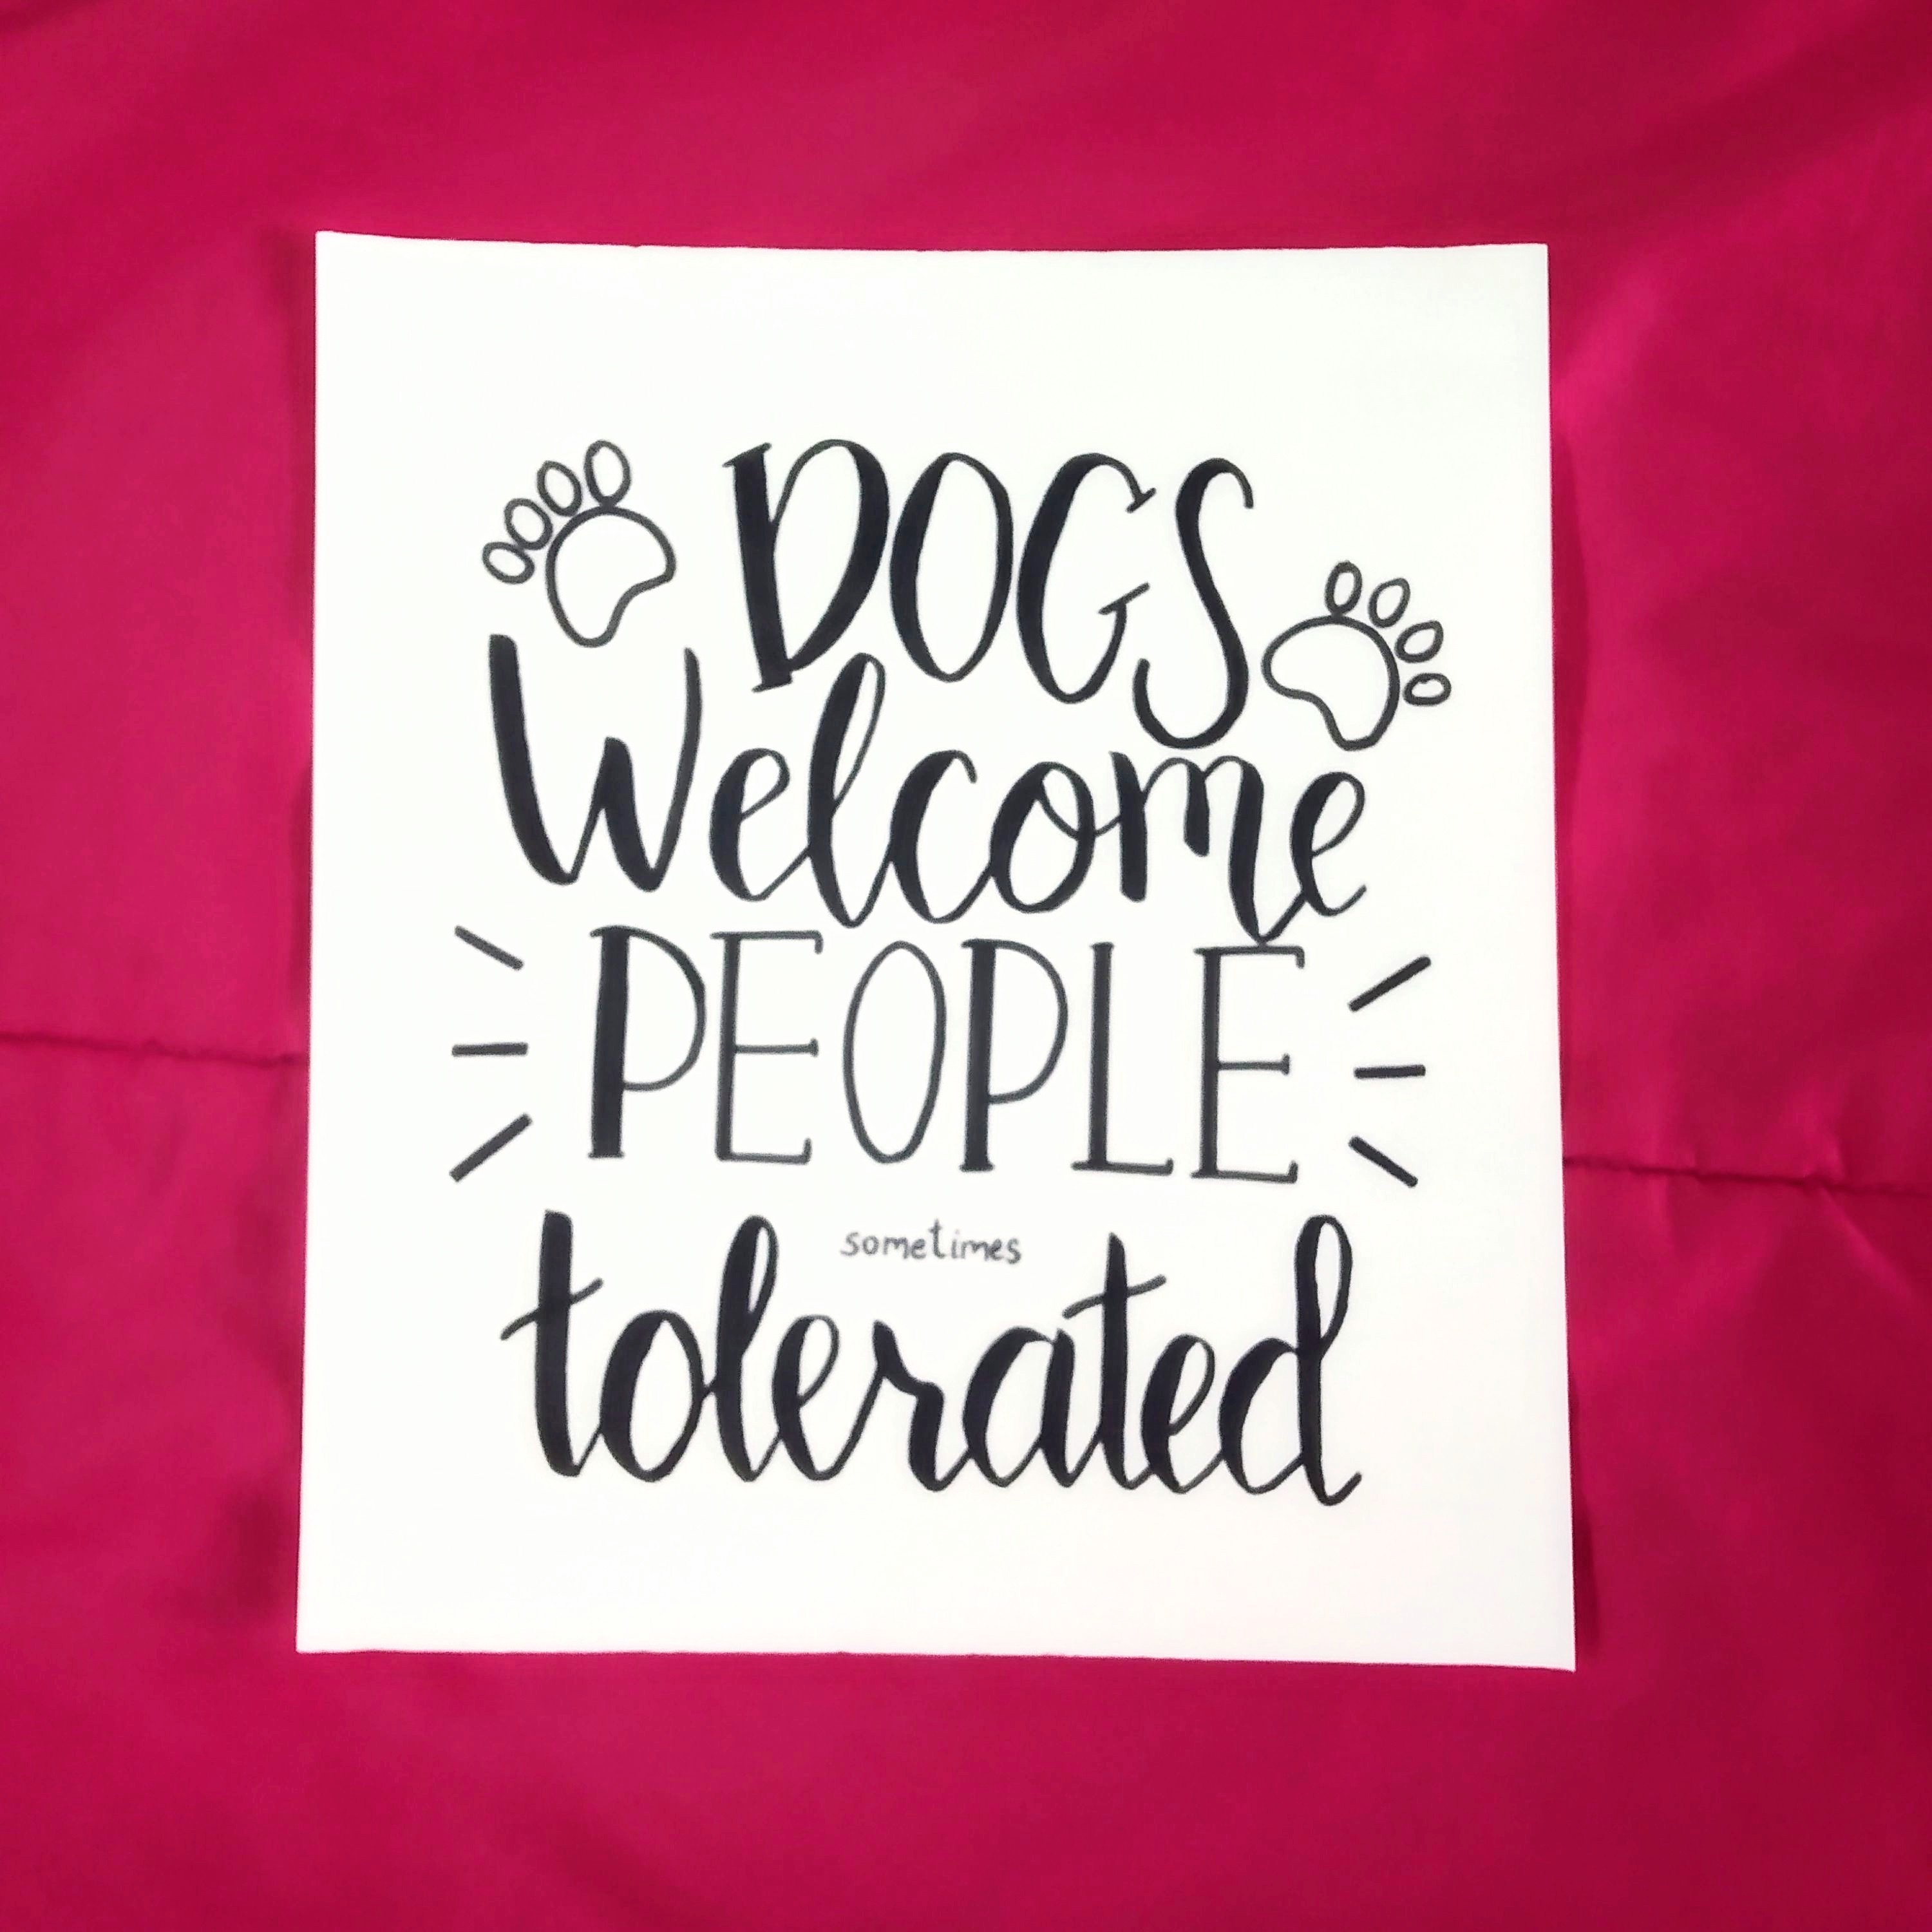 DOGS
Welcome
PEOPLE
sometimes
tolerated